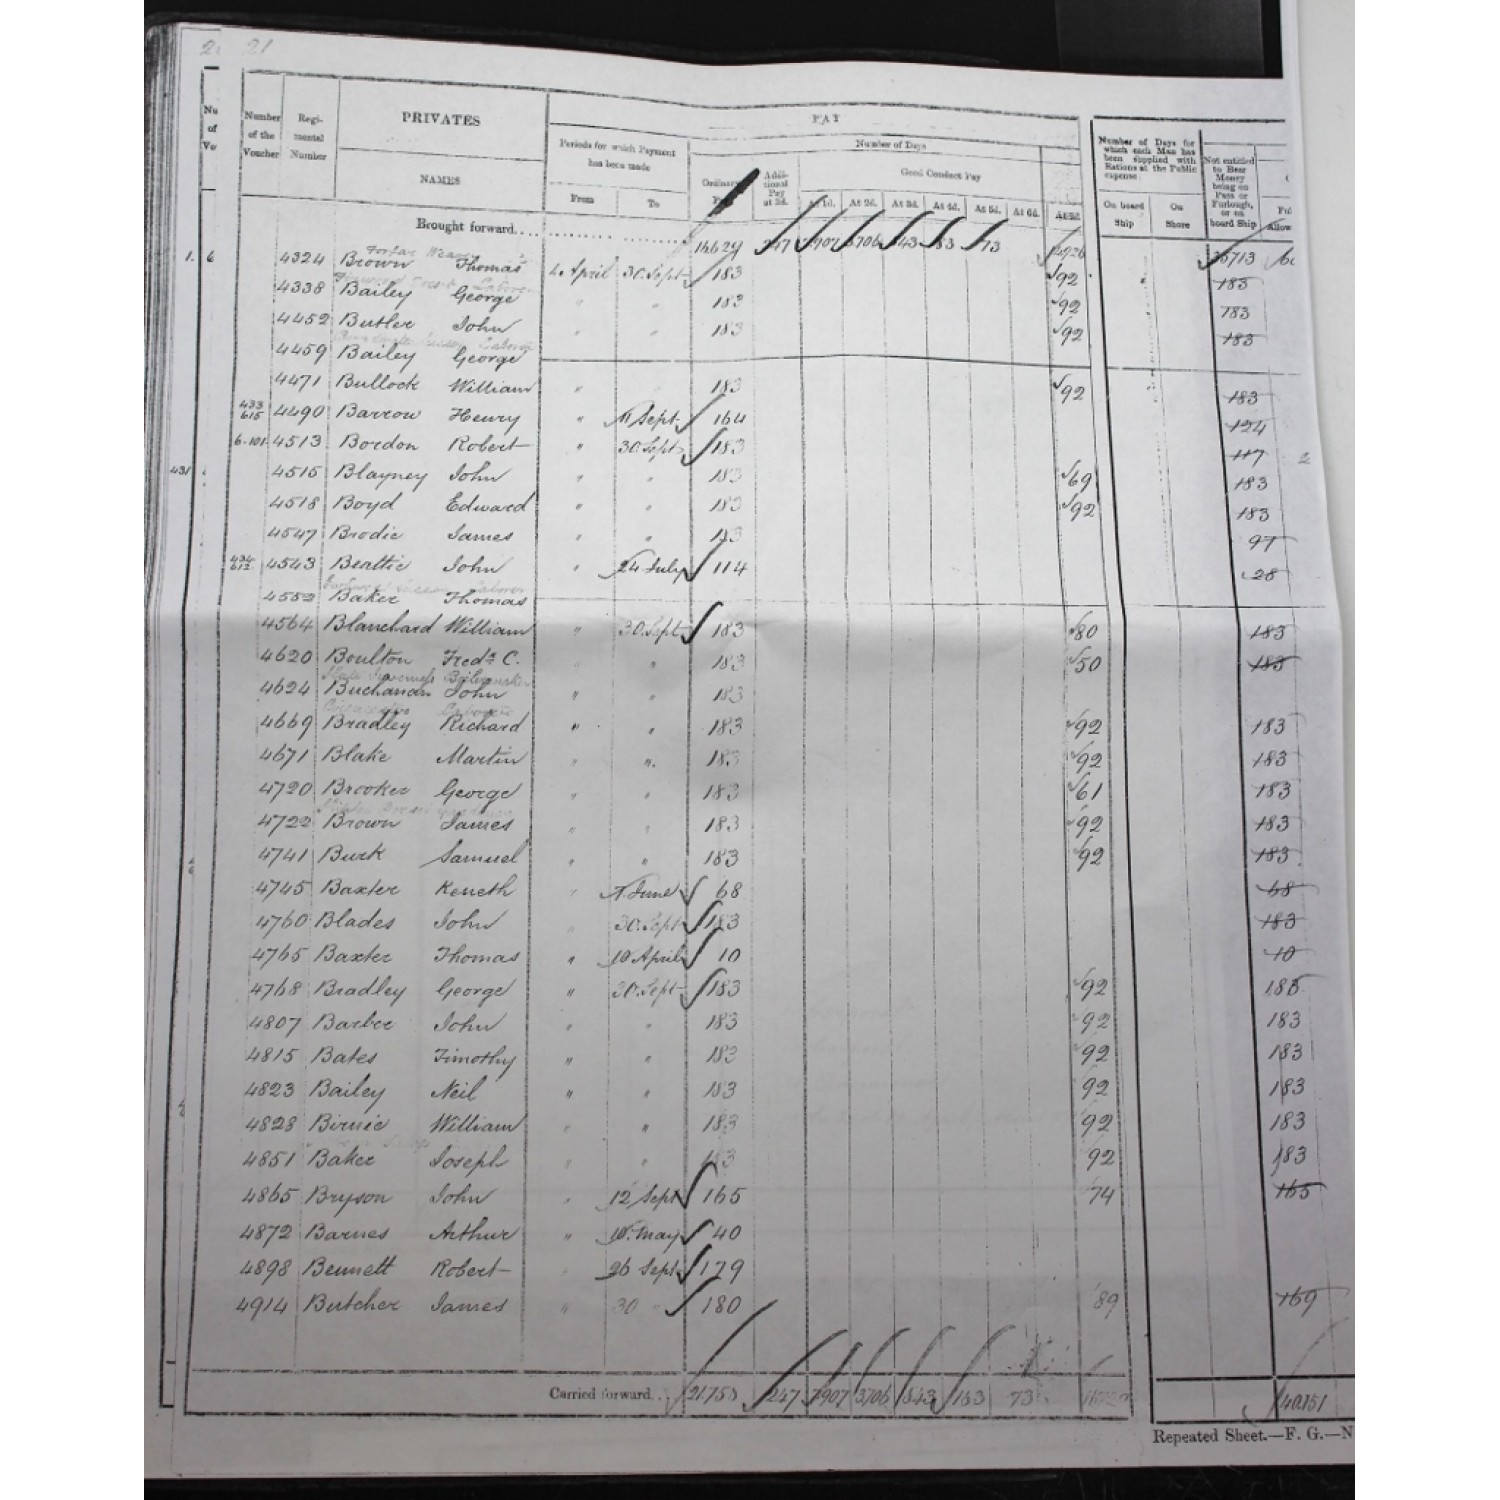 21
Number of the Voucher
Regimental Number
PRIVATES
NAMES
PAY
Periods for which Payment has been made
From
To
Number of Days
Ordinary
Additional Pay at 3d.
Good Conduct Pay
At 1d. At 2d. At 3d. At 4d. At 5d. At 6d.
Number of Days for which each Man has been supplied with Rations at the Public expense
On board Ship
On Shore
Not entitled to Beer Money being on Pass or Furlough, or on board Ship
Brought forward 247 1907 3706 843 73
4324 Brown Thomas 1 April 30 Sept 183 92 183
4338 Bailey George " " 183 92 183
4452 Butler John " " 183 92 183
4459 Bailey George
4471 Bullock William " " 183 92 183
433 615 4490 Barrow Henry " 11 Sept 164 124
6.101 4513 Bordon Robert " 30 Sept 183 117
4515 Blayney John " " 183 69 183
4518 Boyd Edward " " 183 92 183
4547 Brodie James " " 183 97
4543 Beattie John " 24 July 114 28
4552 Baker Thomas
4564 Blanchard William " 30 Sept 183 80 183
4620 Boulton Fredk C. " 183 50 183
4624 Buchanan John " " 183
4669 Bradley Richard " " 183 92 183
4671 Blake Martin " " 183 92 183
4720 Brooker George " " 183 61 183
4722 Brown James " " 183 92 183
4741 Burk Samuel " " 183 92 183
4745 Baxter Keneth " June 68 68
4760 Blades John 30 Sept 183 183
4765 Baxter Thomas " 10 April 10 10
4768 Bradley George " 30 Sept 183 92 183
4807 Barber John " " 183 92 183
4815 Bates Timothy " " 183 92 183
4823 Bailey Neil " " 183 92 183
4828 Birnie William " " 183 92 183
4851 Baker Joseph " " 183 92 183
4865 Bryson John " 12 Sept 165 74 165
4872 Barnes Arthur " 10 May 40
4898 Bennett Robert 26 Sept 179
4914 Butcher James " 30 " 180 89 169
Carried forward 247 1907 3706 843 73 40151
Repeated Sheet.—F. G.—N